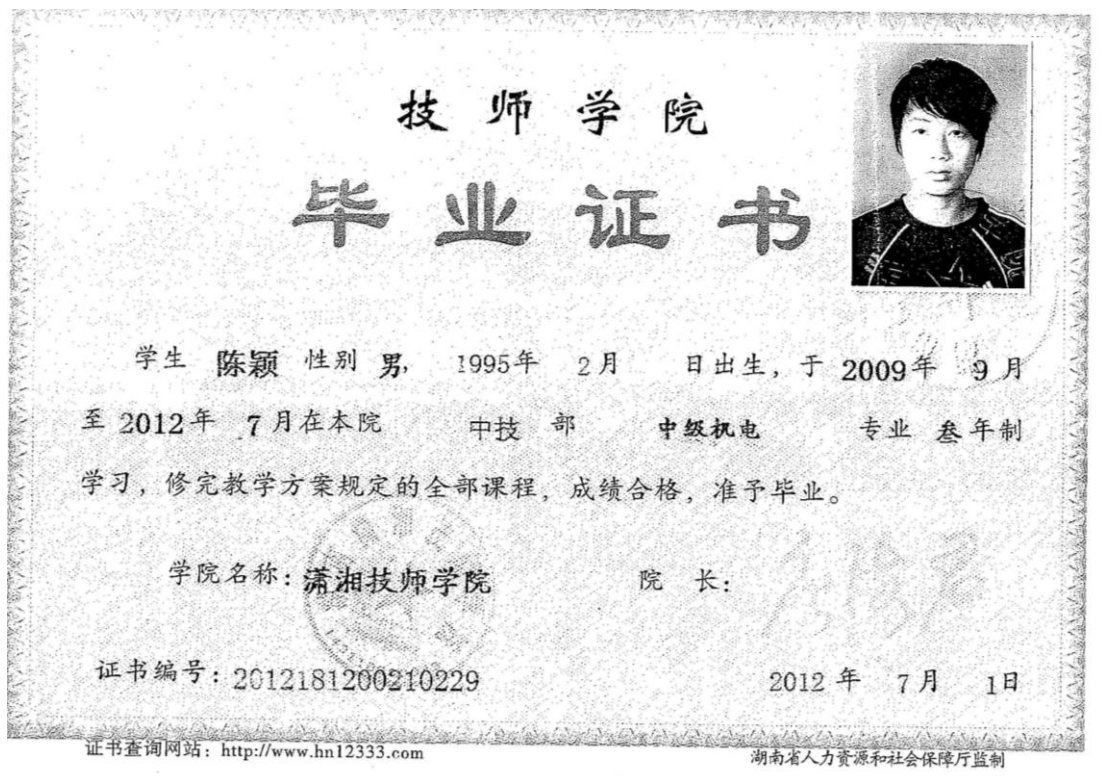 技师学院
毕业证书
学生 陈颖 性别 男, 1995年 2月 日出生, 于 2009年 9月
至 2012年 7月在本院 中技 部 中级机电 专业 叁年制
学习, 修完教学方案规定的全部课程, 成绩合格, 准予毕业。
学院名称: 潇湘技师学院 院 长:
证书编号: 2012181200210229 2012 年 7月 1日
证书查询网站: http://www.hn12333.com 湖南省人力资源和社会保障厅监制